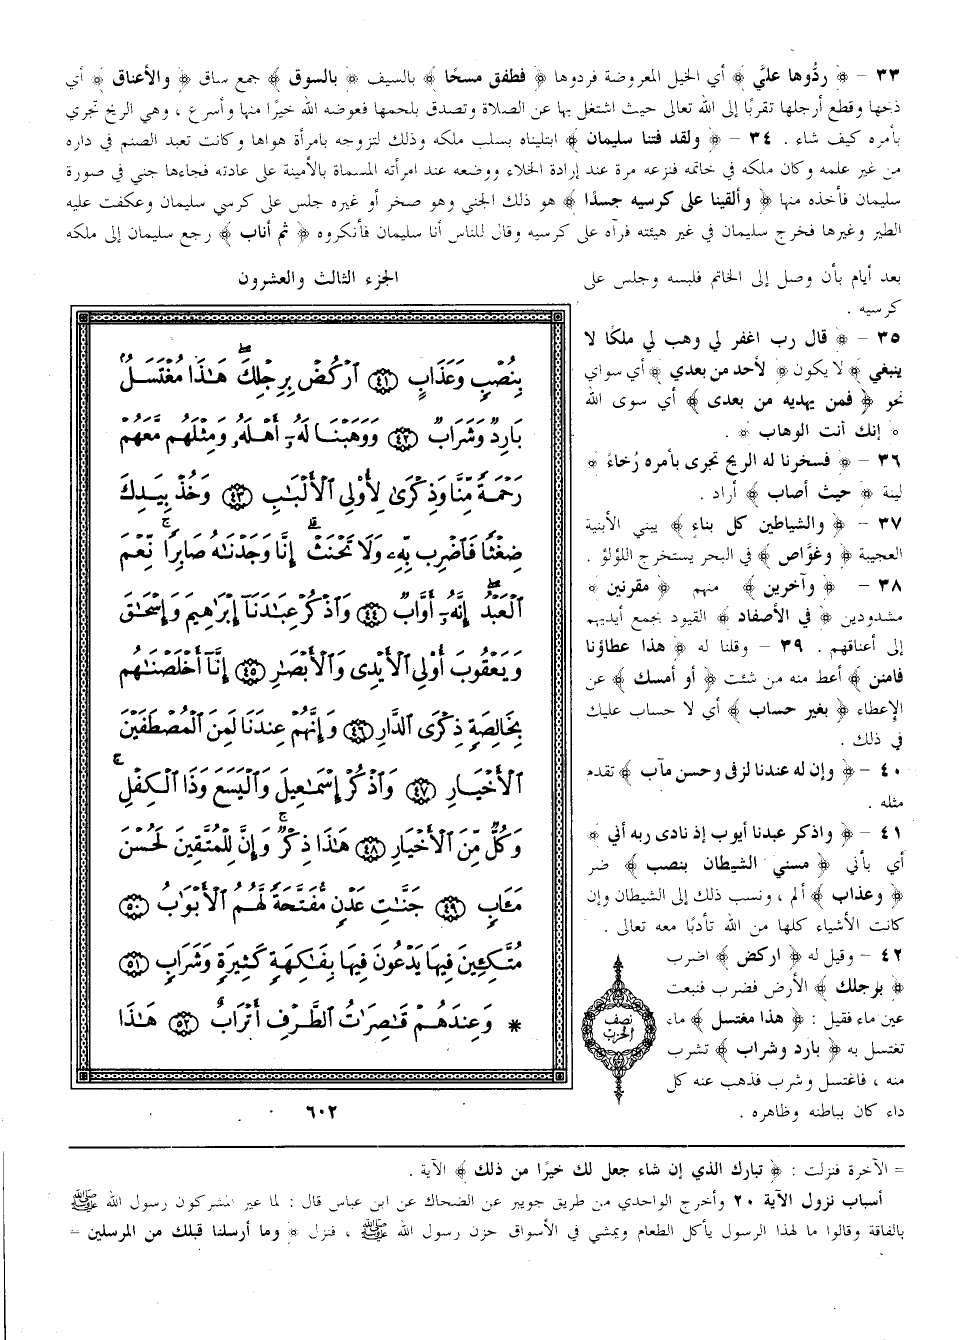 ٣٣ - ﴿ ردُّوها عليَّ ﴾ أي الخيل المعروضة فردوها ﴿ فطفق مسحًا ﴾ بالسيف ﴿ بالسوق ﴾ جمع ساق ﴿ والأعناق ﴾ أي
ذبحها وقطع أرجلها تقربًا إلى الله تعالى حيث اشتغل بها عن الصلاة وتصدق بلحمها فعوضه الله خيرًا منها وأسرع ، وهي الريح تجري
بأمره كيف شاء . ٣٤ - ﴿ ولقد فتنا سليمان ﴾ ابتليناه بسلب ملكه وذلك لتزوجه بامرأة هواها وكانت تعبد الصنم في داره
من غير علمه وكان ملكه في خاتمه فنزعه مرة عند إرادة الخلاء ووضعه عند امرأته المسماة بالأمينة على عادته فجاءها جني في صورة
سليمان فأخذه منها ﴿ وألقينا على كرسيه جسدًا ﴾ هو ذلك الجني وهو صخر أو غيره جلس على كرسي سليمان وعكفت عليه
الطير وغيرها فخرج سليمان في غير هيئته فرآه على كرسيه وقال للناس أنا سليمان فأنكروه ﴿ ثم أناب ﴾ رجع سليمان إلى ملكه
بعد أيام بأن وصل إلى الخاتم فلبسه وجلس على
كرسيه .
٣٥ - ﴿ قال رب اغفر لي وهب لي ملكًا لا
ينبغي ﴾ لا يكون ﴿ لأحد من بعدي ﴾ أي سواي
نحو ﴿ فمن يهديه من بعدى ﴾ أي سوى الله
﴿ إنك أنت الوهاب ﴾ .
٣٦ - ﴿ فسخرنا له الريح تجرى بأمره رُخاءً ﴾
لينة ﴿ حيث أصاب ﴾ أراد .
٣٧ - ﴿ والشياطين كل بناء ﴾ يبني الأبنية
العجيبة ﴿ وغوَّاص ﴾ في البحر يستخرج اللؤلؤ .
٣٨ - ﴿ وآخرين ﴾ منهم ﴿ مقرنين ﴾
مشدودين ﴿ في الأصفاد ﴾ القيود بجمع أيديهم
إلى أعناقهم . ٣٩ - وقلنا له ﴿ هذا عطاؤنا
فامنن ﴾ أعط منه من شئت ﴿ أو أمسك ﴾ عن
الإعطاء ﴿ بغير حساب ﴾ أي لا حساب عليك
في ذلك .
٤٠ - ﴿ وإن له عندنا لزفى وحسن مآب ﴾ تقدم
مثله .
٤١ - ﴿ واذكر عبدنا أيوب إذ نادى ربه أني ﴾
أي بأني ﴿ مسني الشيطان بنصب ﴾ ضر
﴿ وعذاب ﴾ ألم ، ونسب ذلك إلى الشيطان وإن
كانت الأشياء كلها من الله تأدبًا معه تعالى .
٤٢ - وقيل له ﴿ اركض ﴾ اضرب
﴿ برجلك ﴾ الأرض فضرب فنبعت
عين ماء فقيل : ﴿ هذا مغتسل ﴾ ماء
تغتسل به ﴿ بارد وشراب ﴾ تشرب
منه ، فاغتسل وشرب فذهب عنه كل
داء كان بباطنه وظاهره .
نصف
الحزب
الجزء الثالث والعشرون
بِنُصْبٍ وَعَذَابٍ ٤١ ٱرْكُضْ بِرِجْلِكَ هَٰذَا مُغْتَسَلٌۢ
بَارِدٌ وَشَرَابٌ ٤٢ وَوَهَبْنَا لَهُۥٓ أَهْلَهُۥ وَمِثْلَهُم مَّعَهُمْ
رَحْمَةً مِّنَّا وَذِكْرَىٰ لِأُوْلِي ٱلْأَلْبَٰبِ ٤٣ وَخُذْ بِيَدِكَ
ضِغْثًا فَٱضْرِب بِّهِۦ وَلَا تَحْنَثْ إِنَّا وَجَدْنَٰهُ صَابِرًا نِّعْمَ
ٱلْعَبْدُ إِنَّهُۥٓ أَوَّابٌ ٤٤ وَٱذْكُرْ عِبَٰدَنَآ إِبْرَٰهِيمَ وَإِسْحَٰقَ
وَيَعْقُوبَ أُوْلِي ٱلْأَيْدِى وَٱلْأَبْصَٰرِ ٤٥ إِنَّآ أَخْلَصْنَٰهُم
بِخَالِصَةٍ ذِكْرَى ٱلدَّارِ ٤٦ وَإِنَّهُمْ عِندَنَا لَمِنَ ٱلْمُصْطَفَيْنَ
ٱلْأَخْيَارِ ٤٧ وَٱذْكُرْ إِسْمَٰعِيلَ وَٱلْيَسَعَ وَذَا ٱلْكِفْلِ
وَكُلٌّ مِّنَ ٱلْأَخْيَارِ ٤٨ هَٰذَا ذِكْرٌ وَإِنَّ لِلْمُتَّقِينَ لَحُسْنَ
مَـَٔابٍ ٤٩ جَنَّٰتِ عَدْنٍ مُّفَتَّحَةً لَّهُمُ ٱلْأَبْوَٰبُ ٥٠
مُتَّكِـِٔينَ فِيهَا يَدْعُونَ فِيهَا بِفَٰكِهَةٍ كَثِيرَةٍ وَشَرَابٍ ٥١
* وَعِندَهُمْ قَٰصِرَٰتُ ٱلطَّرْفِ أَتْرَابٌ ٥٢ هَٰذَا
٦٠٢
= الآخرة فنزلت : ﴿ تبارك الذي إن شاء جعل لك خيرًا من ذلك ﴾ الآية .
أسباب نزول الآية ٢٠ وأخرج الواحدي من طريق جويبر عن الضحاك عن ابن عباس قال : لما عير المشركون رسول الله ﷺ
بالفاقة وقالوا ما لهذا الرسول يأكل الطعام ويمشي في الأسواق حزن رسول الله ﷺ ، فنزل ﴿ وما أرسلنا قبلك من المرسلين =